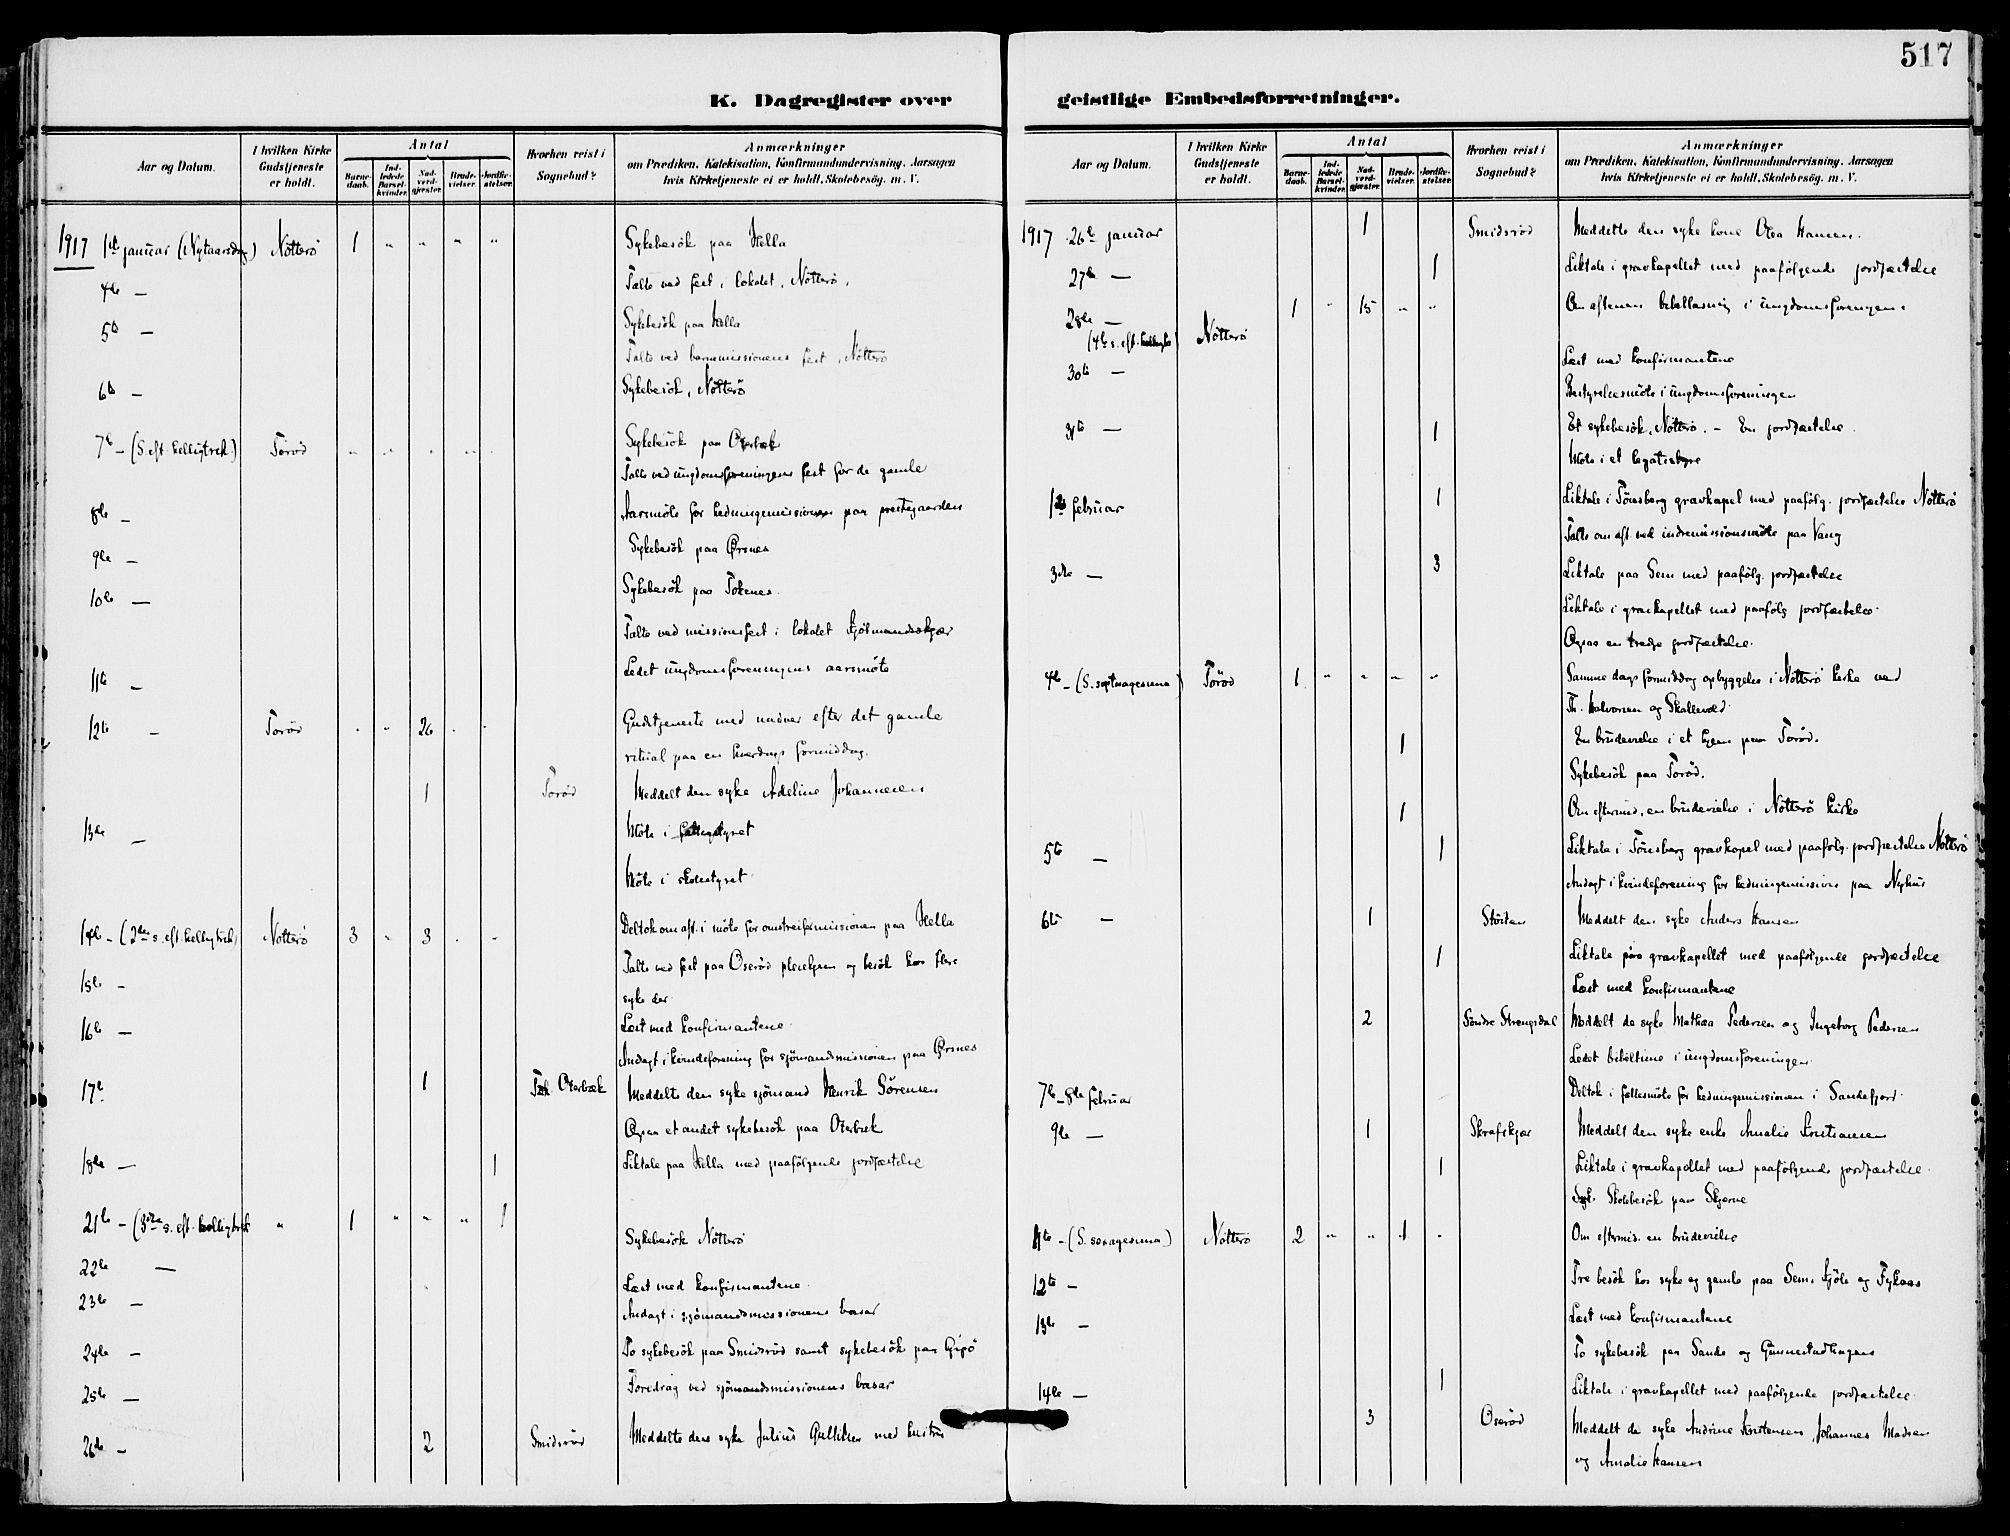 517
K. Dagregister over geistlige Embedsforretninger.
Aar og Datum. I hvilken Kirke Gudstjeneste er holdt. Antal Barnedaab. Indledede Barselkvinder. Nadverdgjæster. Brudevielser. Jordfæstelser. Hvorhen reist i Sognebud? Anmærkninger om Prædiken, Katekisation, Konfirmandundervisning, Aarsagen hvis Kirketjeneste ei er holdt, Skolebesøg. m. V.
1917 1ste januar (Nytaarsdag) Nötterö 1 " " " " Sykebesök paa Hella
4de — Talte ved fest i lokalet, Nötterö.
5te — Sykebesök paa Hella
Talte ved barnemissionens fest, Nötterö
6te — Sykebesök, Nötterö
7de — (S. eft. helligtrek.) Torød " " " " " Sykebesök paa Oterbæk
Talte ved ungdomsforeningens fest for de gamle
8de — Aarsmöte for hedningemissionen paa prestegaarden
9de — Sykebesök paa Ørsnes
10de — Sykebesök paa Tokenes.
Talte ved missionsfest i lokalet Kjölmandsskjær
11te — Ledet ungdomsforeningens aarsmöte
12te — Torød " " 26 " " Gudstjeneste med nadver efter det gamle
ritual paa en hverdags formiddag.
1 Torød Meddelt den syke Adeline Johannesen
13de — Möte i fattigstyret
Möte i skolestyret
14de — (2den s. eft. helligtrek) Nötterö 3 " 3 " " Deltok om aft. i möte for omstreifermissionen paa Hella
15de — Talte ved fest paa Oserød pleiehjem og besök hos flere
syke der.
16de — Læst med konfirmantene.
Andagt i kvindeforening for sjömandsmissionen paa Ørsnes
17de 1 Oterbæk Meddelte den syke sjömand Henrik Sörensen
Ogsaa et andet sykebesök paa Oterbæk
18de — 1 Liktale paa Hella med paafölgende jordfæstelse
21de — (3die s. eft. helligtrek " 1 " " " 1
Sykebesök Nötterö
22de — Læst med konfirmantene.
23de — Andagt i sjömandsmissionens basar
24de — To sykebesök paa Smidsrød samt sykebesök paa Gipö
25de — Foredrag ved sjömandsmissionens basar
26de — 2 Smidsrød Meddelte den syke Julius Gulliksen med hustru
Aar og Datum. I hvilken Kirke Gudstjeneste er holdt. Antal Barnedaab. Indledede Barselkvinder. Nadverdgjæster. Brudevielser. Jordfæstelser. Hvorhen reist i Sognebud? Anmærkninger om Prædiken, Katekisation, Konfirmandundervisning, Aarsagen hvis Kirketjeneste ei er holdt, Skolebesøg. m. V.
1917 26de januar 1 Smidsrød Meddelte den syke kone Olea Hansen.
27de — 1 Liktale i gravkapellet med paafölgende jordfæstelse
28de — (4de s. eft. helligtr) Nötterö 1 " 15 " " Om aftenen bibellæsning i ungdomsforengen.
30te — Læst med konfirmantene
Bestyrelsesmöte i ungdomsforeningen
31te — 1 Et sykebesök, Nötterö. – En jordfæstelse.
Möte i et legatstyre
1ste februar 1 Liktale i Tönsberg gravkapel med paafölg. jordfæstelse Nötterö
Talte om aft. ved indremissionsmöte paa Vang
3die — 3 Liktale paa Sem med paafölg. jordfæstelse
Liktale i gravkapellet med paafölg jordfæstelse.
Ogsaa en tredje jordfæstelse.
4de — (S. septuagesima) Torød 1 " " " " Samme dags formiddag opbyggelse i Nötterö kirke ved
Th. Halvorsen og Skallevold.
1 En brudevielse i et hjem paa Torød.
Sykebesök paa Torød.
1 Om eftermid. en brudevielse i Nötterö kirke
5te — 1 Liktale i Tönsberg gravkapel med paafölg. jordfæstelse Nötterö
Andagt i kvindeforening for hedningemissionen paa Nyhus
6te — 1 Stöiten Meddelt den syke Anders Hansen
1 Liktale paa gravkapellet med paafölgende jordfæstelse
Læst med konfirmantene
2 Söndre Strengsdal Meddelt de syke Mathea Pedersen og Ingeborg Pedersen
Ledet bibeltime i ungdomsforeningen
7de–8de februar Deltok i fællesmöte for hedningemissionen i Sandefjord.
9de — 1 Skrafskjær Meddelt den syke enke Amalie Kristiansen
1 Liktale i gravkapellet med paafölgende jordfæstelse.
Skolebesök paa Skjerve
11te — (S. sexagesima) Nötterö 2 " " 1 " Om eftermid. en brudevielse
12te — Tre besök hos syke og gamle paa Sem, Kjöle og Tykaas
13de — Læst med konfirmantene
To sykebesök paa Sande og Gunnestadhagen
14de — 1 Liktale i gravkapellet med paafölgende jordfæstelse.
3 Oserød Meddelt de syke Andrine Kristensen, Johannes Madsen
og Amalie Hansen